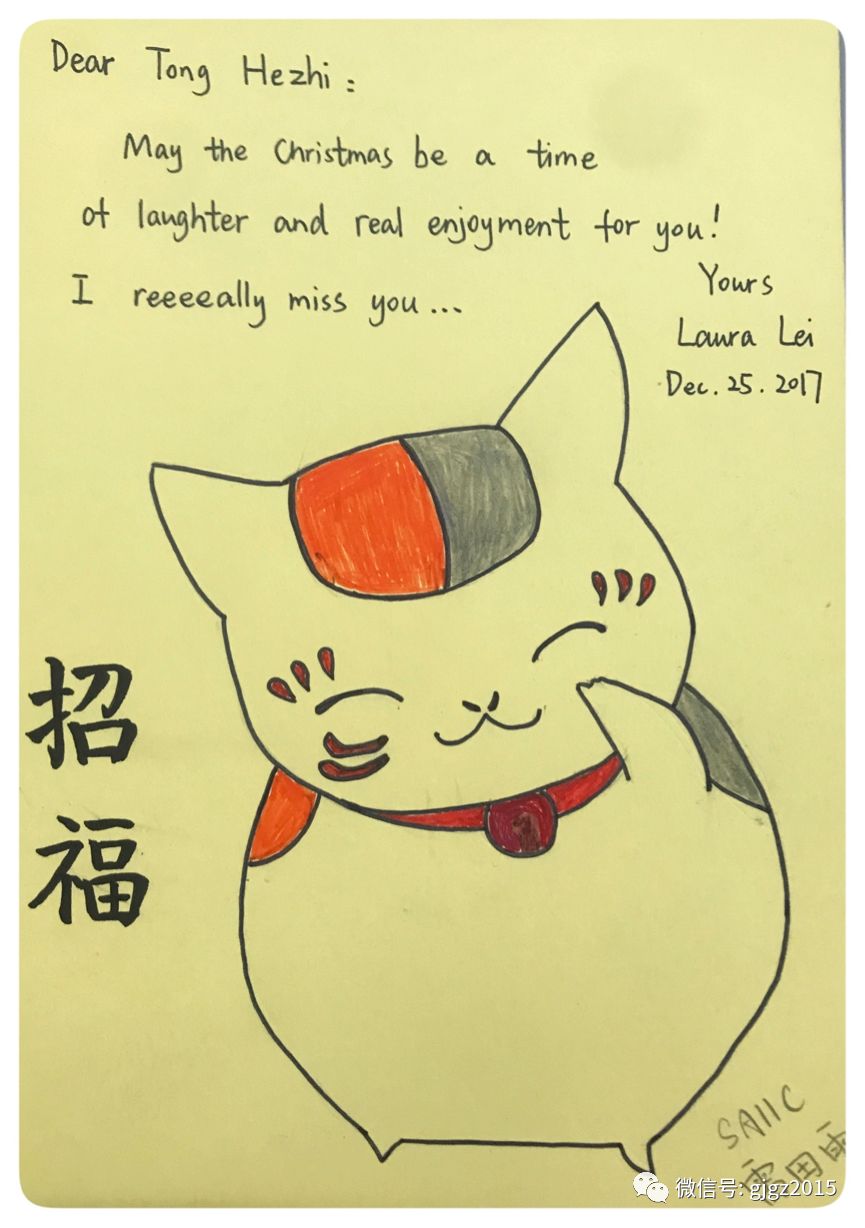 Dear Tong Hezhi:
May the Christmas be a time
of laughter and real enjoyment for you!
I reeeeally miss you...
Yours
Laura Lei
Dec. 25. 2017
招
福
SA11C
微信号: gjgz2015